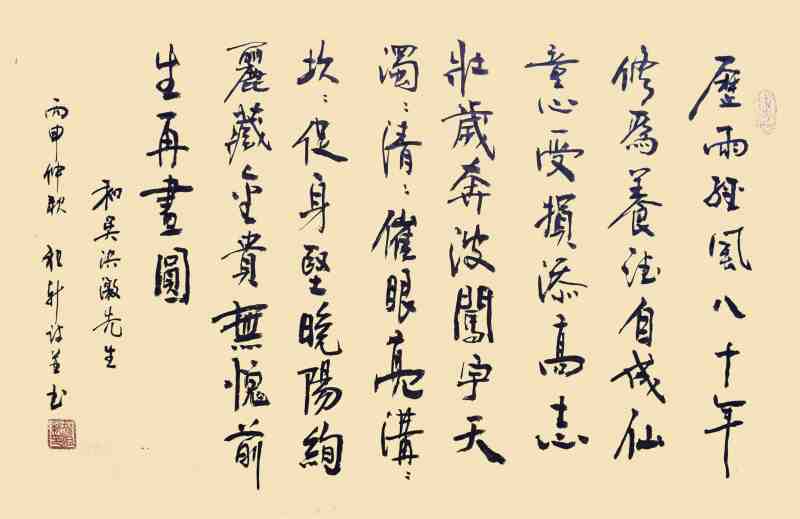 歷雨經風八十年
修為養德自成仙
童心受損添高志
壯歲奔波闖宇天
濁〻清〻催眼亮溝〻
坎〻促身堅晚陽絢
麗藏金貴無愧前
生再畫圓
和吳洪激先生
丙申仲秋 祖軒詩並書